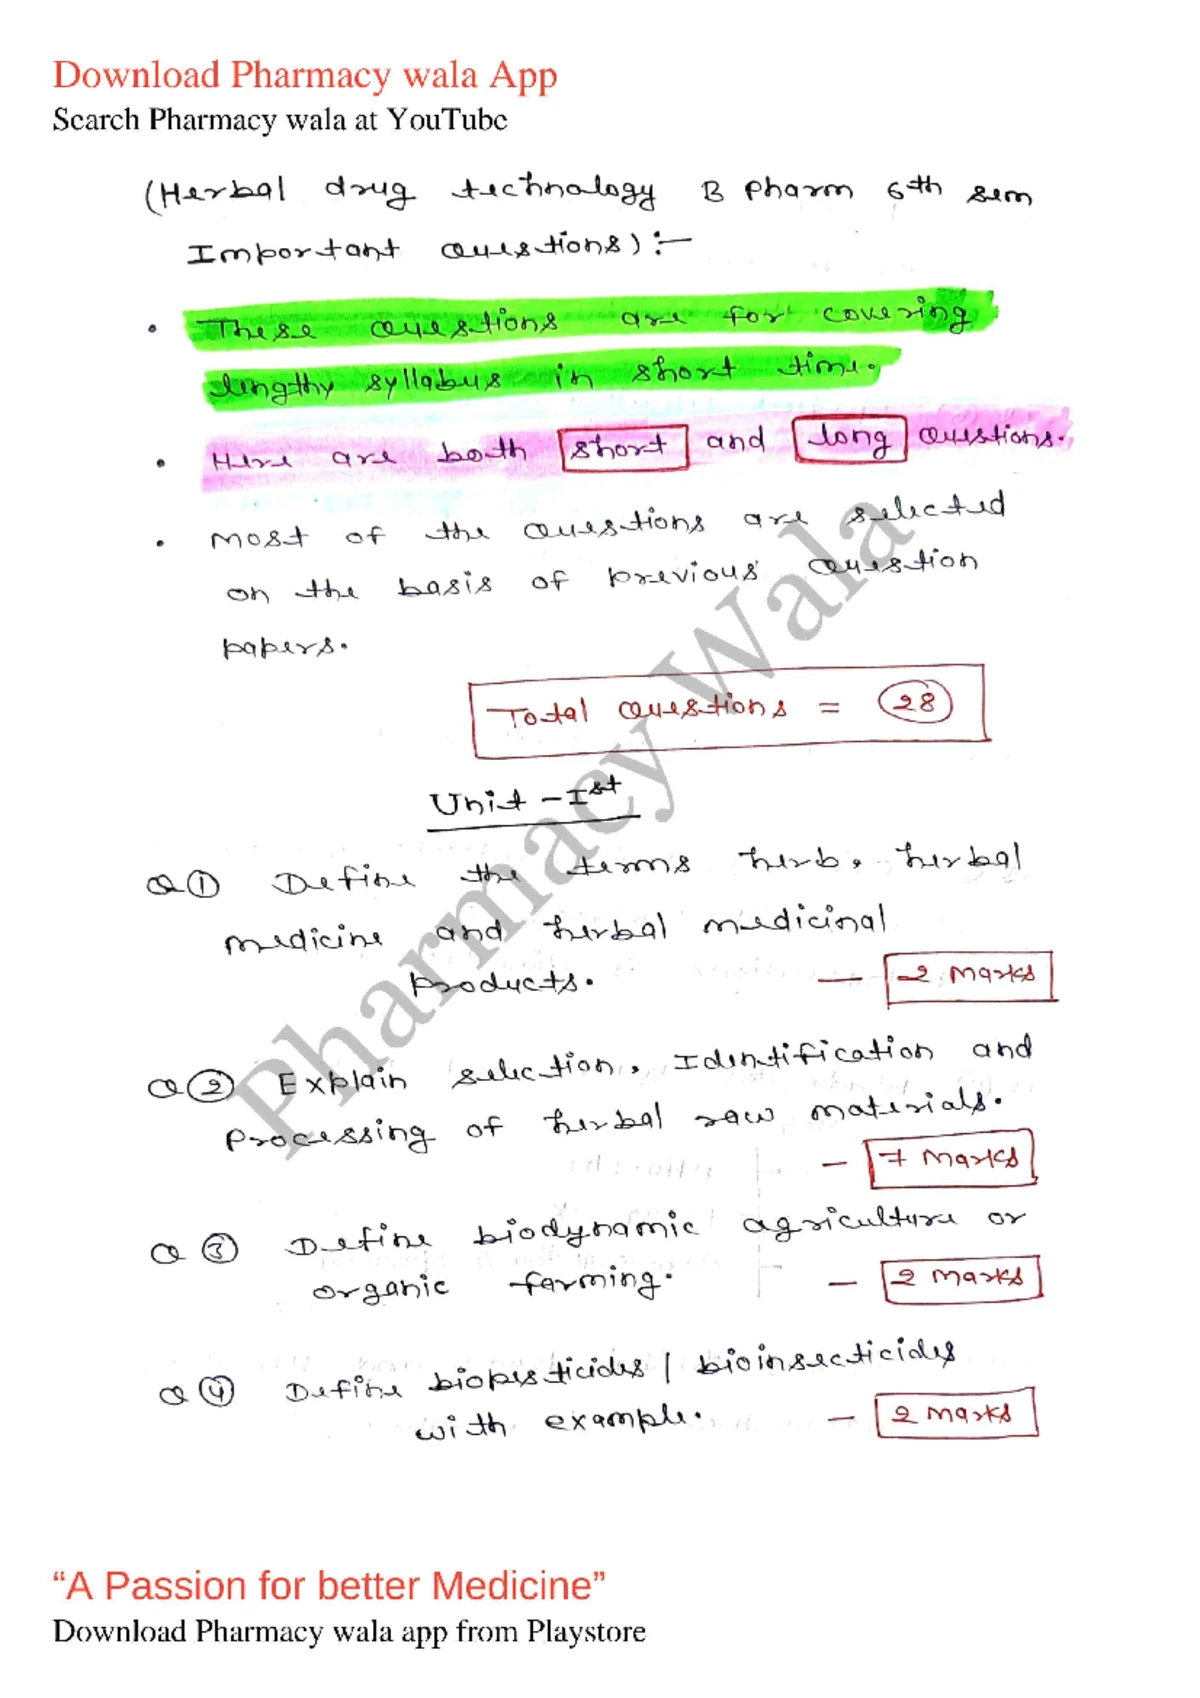 Download Pharmacy wala App
Search Pharmacy wala at YouTube
(Herbal drug technology B Pharm 6th sem
Important Questions) :-
• These Questions are for covering
lengthy syllabus in short time.
• Here are both short and long Questions.
• Most of the Questions are selected
on the basis of previous Question
papers.
Total Questions = 28
Unit - Ist
Q 1 Define the terms herb, herbal
medicine and herbal medicinal
products. — 2 Marks
Q 2 Explain selection, Identification and
Processing of herbal raw materials.
— 7 Marks
Q 3 Define biodynamic agriculture or
organic farming. — 2 Marks
Q 4 Define biopesticides / bioinsecticides
with example. — 2 Marks
Pharmacy Wala
“A Passion for better Medicine”
Download Pharmacy wala app from Playstore